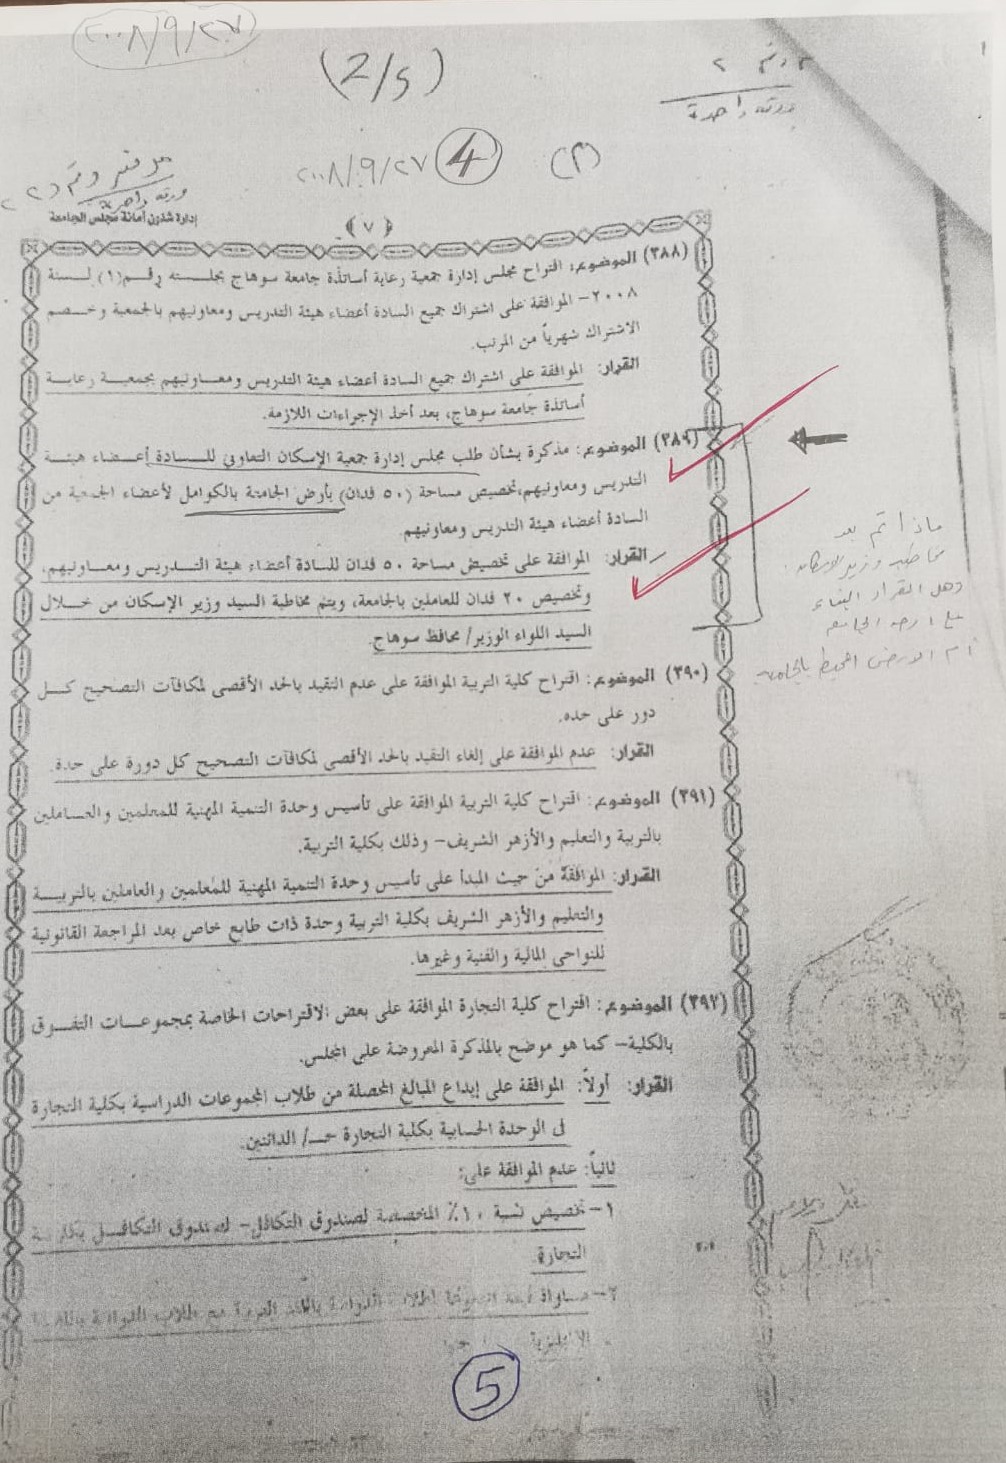 ٢٠٠٨/٩/٢٧
(2/5)
ورقة واحدة
٢٠٠٨/٩/٢٧
4
(٣)
مرفق رقم (٢)
ورقة واحدة
إدارة شئون أمانة مجلس الجامعة
(٧)
(٣٨٨) الموضوع: اقتراح مجلس إدارة جمعية رعاية أساتذة جامعة سوهاج بجلسته رقم (١) لسنة
٢٠٠٨- الموافقة على اشتراك جميع السادة أعضاء هيئة التدريس ومعاونيهم بالجمعية وخصم
الاشتراك شهرياً من المرتب.
القرار: الموافقة على اشتراك جميع السادة أعضاء هيئة التدريس ومعاونيهم بجمعية رعاية
أساتذة جامعة سوهاج، بعد أخذ الإجراءات اللازمة.
(٣٨٩) الموضوع: مذكرة بشأن طلب مجلس إدارة جمعية الإسكان التعاوني للسادة أعضاء هيئة
التدريس ومعاونيهم، تخصيص مساحة (٥٠ فدان) بأرض الجامعة بالكوامل لأعضاء الجمعية من
السادة أعضاء هيئة التدريس ومعاونيهم.
القرار: الموافقة على تخصيص مساحة ٥٠ فدان للسادة أعضاء هيئة التدريس ومعاونيهم،
وتخصيص ٢٠ فدان للعاملين بالجامعة، ويتم مخاطبة السيد وزير الإسكان من خلال
السيد اللواء الوزير/ محافظ سوهاج.
ماذا تم بعد
مخاطبة وزير الإسكان
وهل القرار البناء
على ارض الجامعة
أم الارض المحيط بالجامعة
(٣٩٠) الموضوع: اقتراح كلية التربية الموافقة على عدم التقيد بالحد الأقصى لمكافآت التصحيح كل
دور على حده.
القرار: عدم الموافقة على إلغاء التقيد بالحد الأقصى لمكافآت التصحيح كل دورة على حدة.
(٣٩١) الموضوع: اقتراح كلية التربية الموافقة على تأسيس وحدة التنمية المهنية للمعلمين والعاملين
بالتربية والتعليم والأزهر الشريف- وذلك بكلية التربية.
القرار: الموافقة من حيث المبدأ على تأسيس وحدة التنمية المهنية للمعلمين والعاملين بالتربية
والتعليم والأزهر الشريف بكلية التربية وحدة ذات طابع خاص بعد المراجعة القانونية
للنواحى المالية والفنية وغيرها.
(٣٩٢) الموضوع: اقتراح كلية التجارة الموافقة على بعض الاقتراحات الخاصة بمجموعات التفوق
بالكلية- كما هو موضح بالمذكرة المعروضة على المجلس.
القرار: أولاً: الموافقة على إيداع المبالغ المحصلة من طلاب المجموعات الدراسية بكلية التجارة
فى الوحدة الحسابية بكلية التجارة حـ/ الدائنين.
ثانياً: عدم الموافقة على:
١- تخصيص نسبة ١٠٪ المخصصة لصندوق التكافل- لصندوق التكافل بكلية
التجارة.
٢- مساواة
5